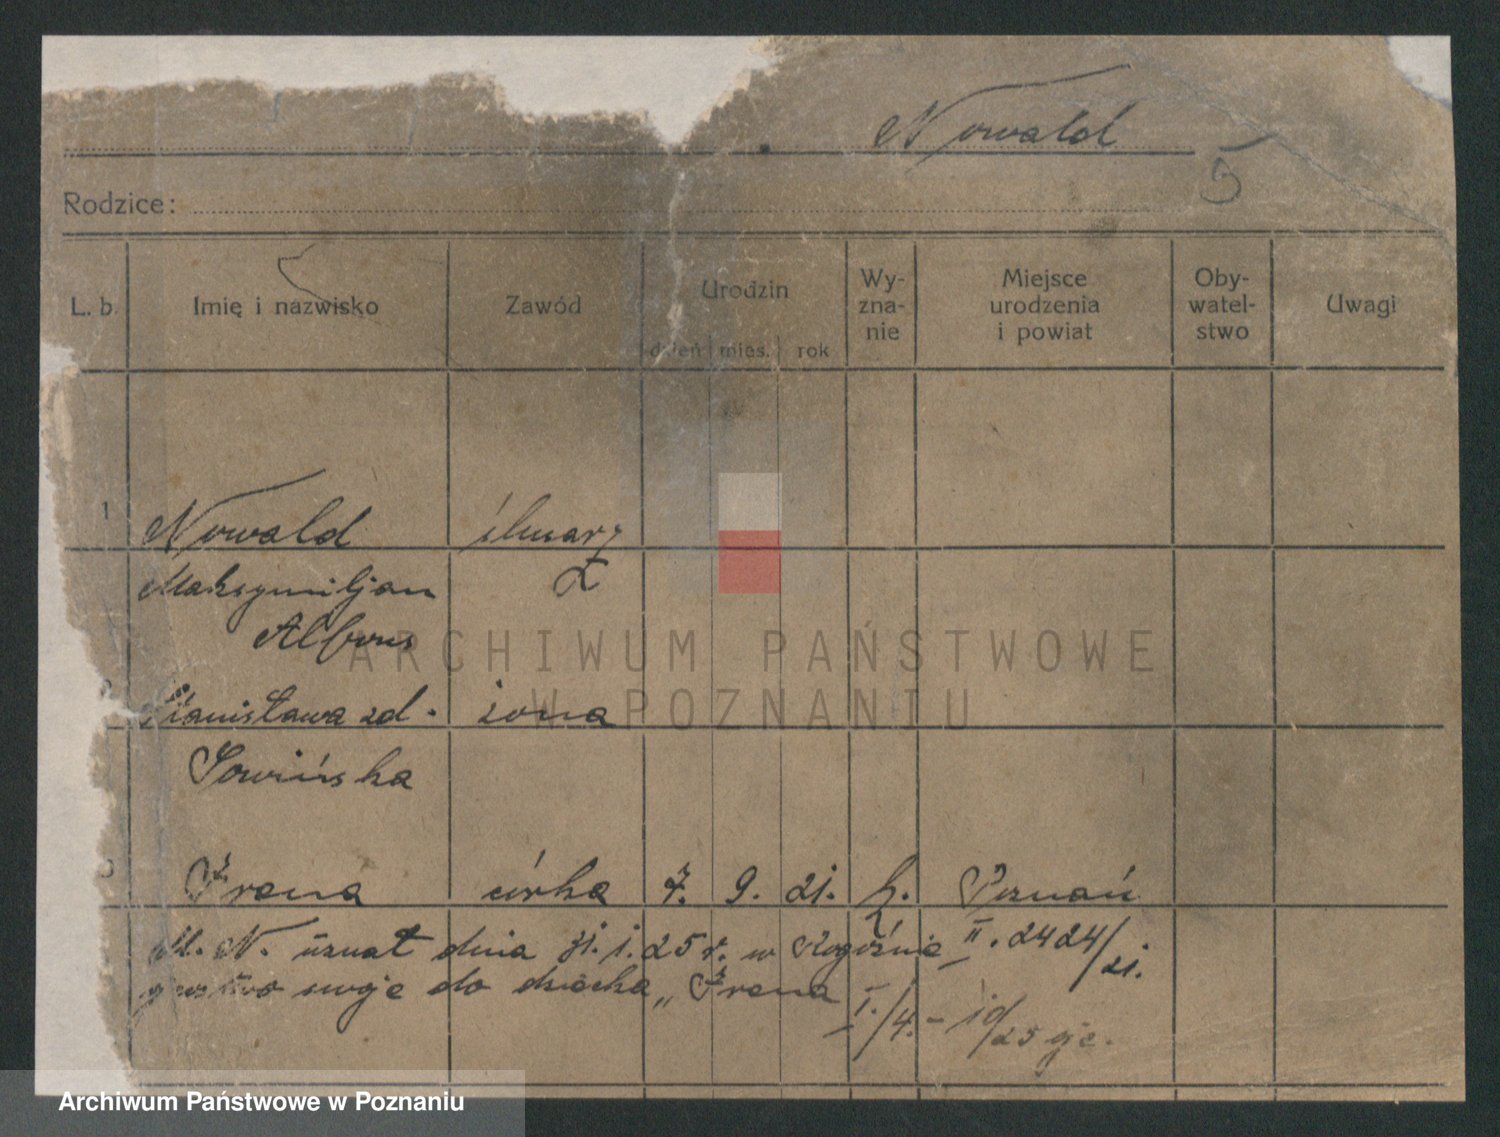 Nowald
5
Rodzice:
L. b. Imię i nazwisko Zawód Urodzin dzień mies. rok Wy- zna- nie Miejsce urodzenia i powiat Oby- watel- stwo Uwagi
1 Nowald ślusarz
Maksymiljan
Alfons
Stanisława zd. żona
Sowińska
Irena córka 7. 9. 21. k. Poznań
M. N. uznał dnia 31. 1. 25 r. w Rogoźnie II. 2424/21.
swoje do dziecka „Irena
I./4. - 10/25
ARCHIWUM PAŃSTWOWE
W POZNANIU
Archiwum Państwowe w Poznaniu